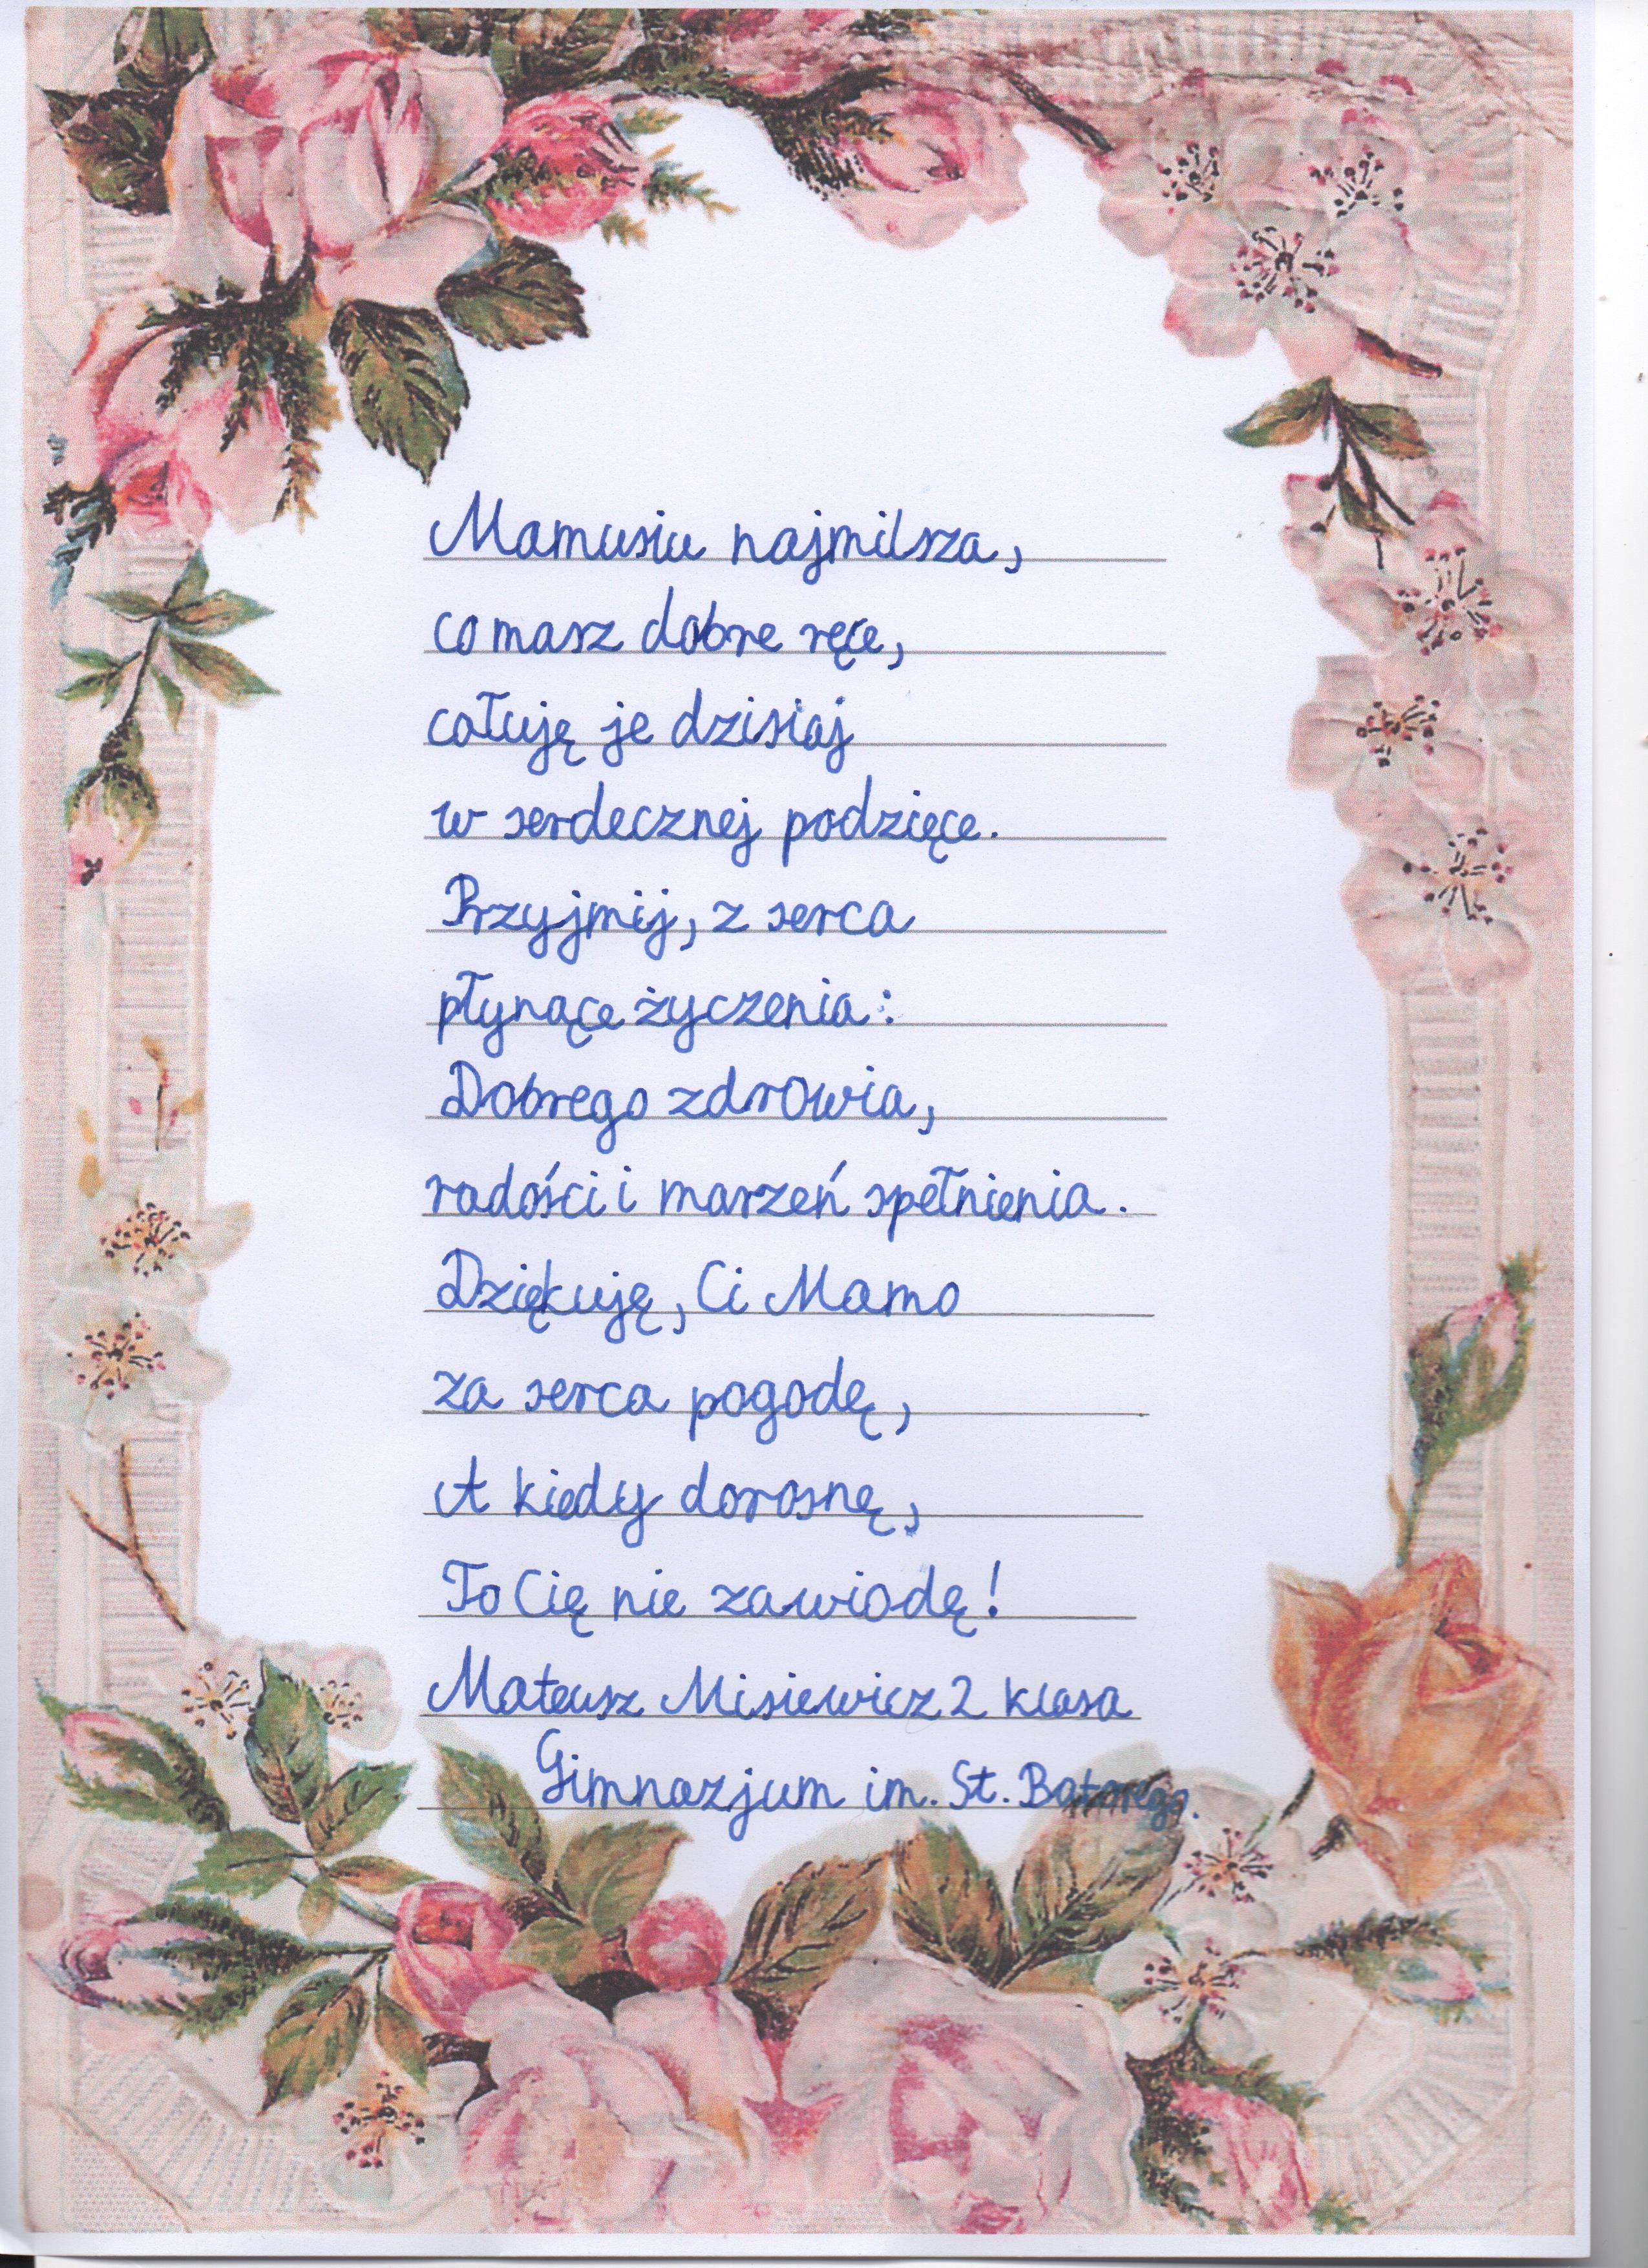 Mamusiu najmilsza,
co masz dobre ręce,
całuję je dzisiaj
w serdecznej podzięce.
Przyjmij, z serca
płynące życzenia:
Dobrego zdrowia,
radości i marzeń spełnienia.
Dziękuję, Ci Mamo
za serca pogodę,
A kiedy dorosnę,
To Cię nie zawiodę!
Mateusz Misiewicz 2 klasa
Gimnazjum im. St. Batorego.